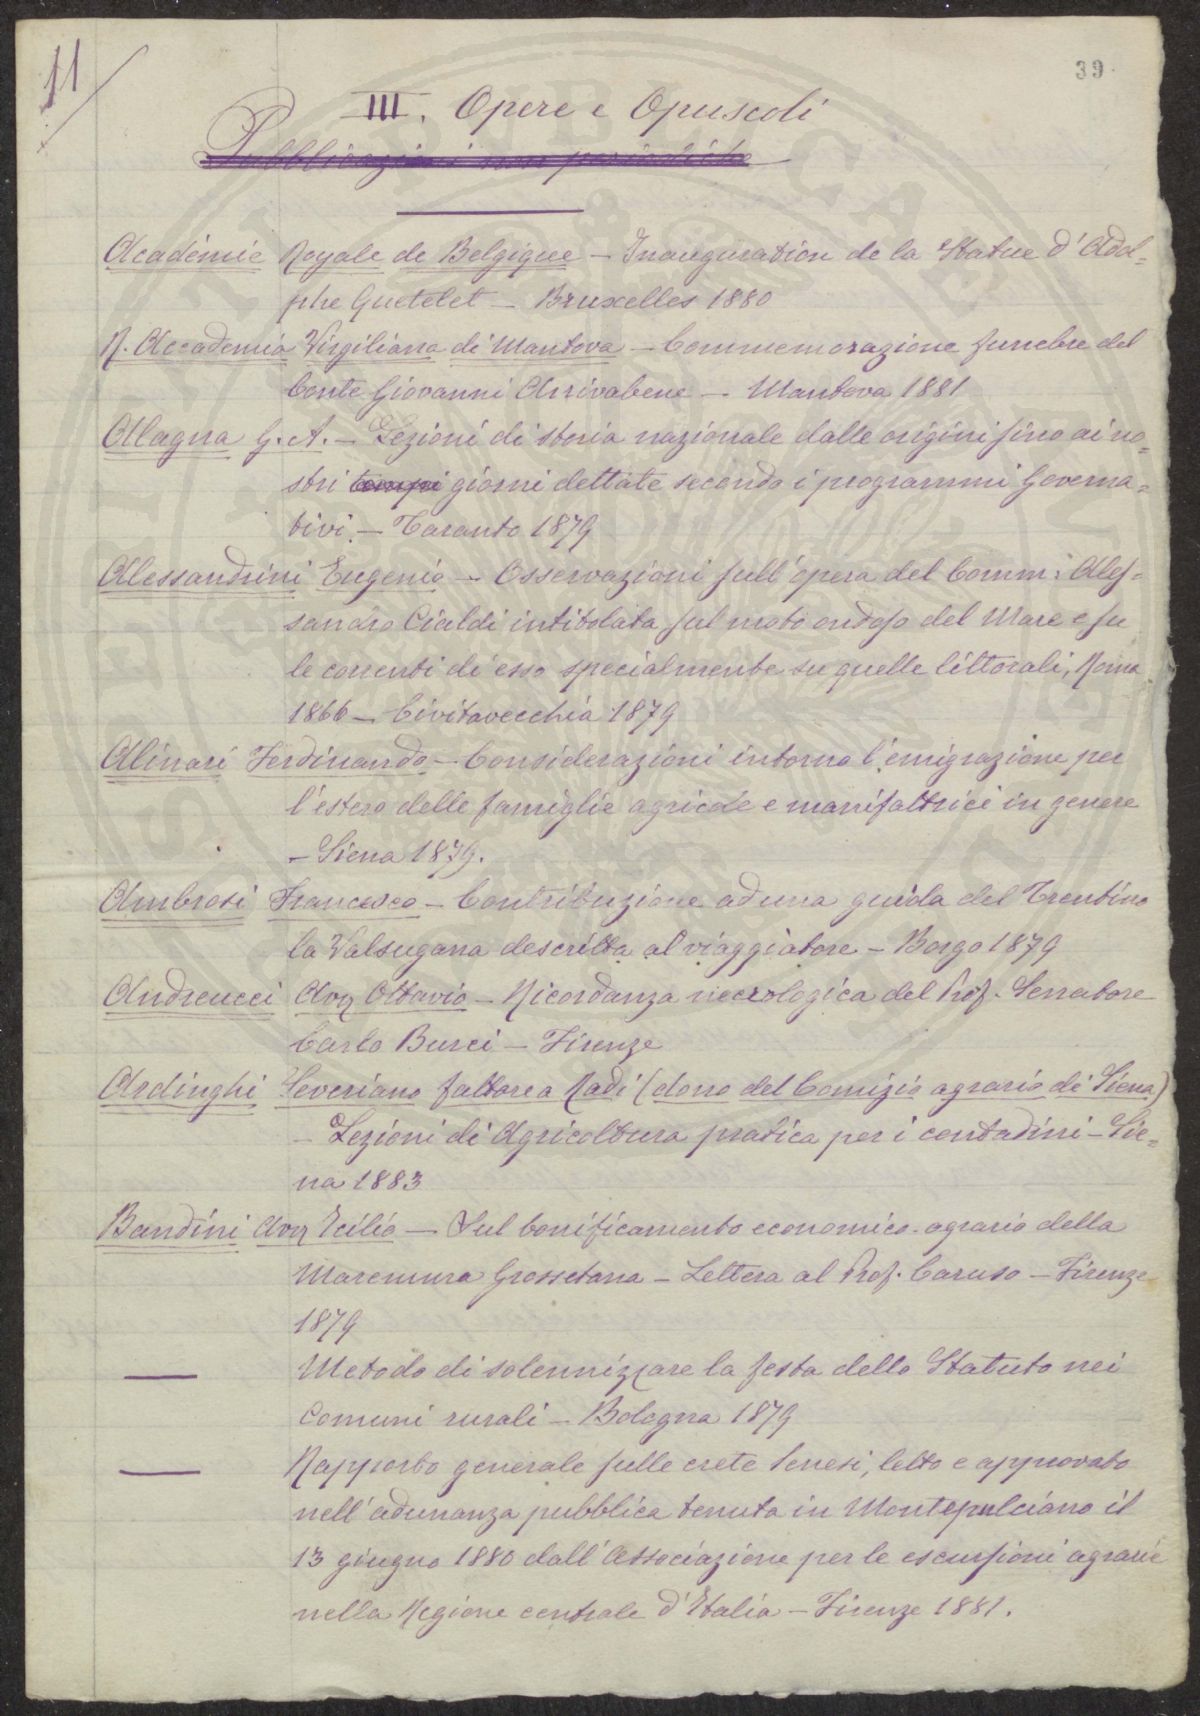 11
39
III. Opere e Opuscoli
Pubblicazioni non periodiche
Académie Royale de Belgique — Inauguration de la Statue d'Adol=
phe Quetelet — Bruxelles 1880
R. Accademia Virgiliana di Mantova — Commemorazione funebre del
Conte Giovanni Arrivabene — Mantova 1881
Alagna G. A. — Lezioni di storia nazionale dalle origini fino ai no=
stri tempi giorni dettate secondo i programmi Governa=
tivi. — Taranto 1879
Alessandrini Eugenio — Osservazioni sull'opera del Comm: Ales=
sandro Cialdi intitolata sul moto ondoso del Mare e su
le correnti di esso specialmente su quelle littorali, Roma
1866 — Civitavecchia 1879
Alinari Ferdinando — Considerazioni intorno l'emigrazione per
l'estero delle famiglie agricole e manifattrici in genere
— Siena 1879.
Ambrosi Francesco — Contribuzione ad una guida del Trentino
la Valsugana descritta al viaggiatore — Borgo 1879
Andreucci Avv Ottavio — Ricordanza necrologica del Prof. Senatore
Carlo Burci — Firenze
Ardinghi Severiano fattore a Radi (dono del Comizio agrario di Siena)
— Lezioni di Agricoltura pratica per i contadini — Sie=
na 1883
Bandini Avv Icilio — Sul bonificamento economico-agrario della
Maremma Grossetana — Lettera al Prof. Caruso — Firenze
1879
— Metodo di solennizzare la festa dello Statuto nei
Comuni rurali — Bologna 1879
— Rapporto generale sulle crete Senesi, letto e approvato
nell'adunanza pubblica tenuta in Montepulciano il
13 giugno 1880 dall'Associazione per le escursioni agrarie
nella Regione centrale d'Italia — Firenze 1881.